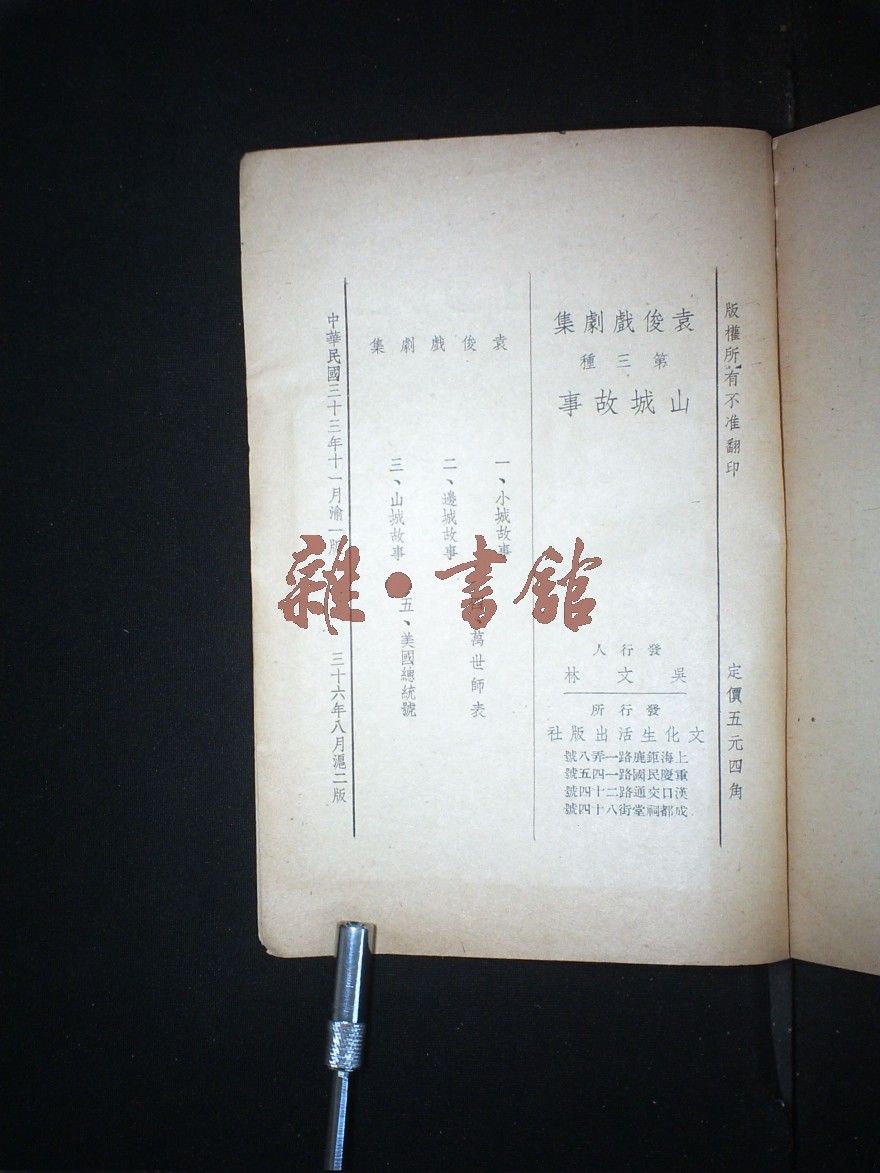 版權所有不准翻印
定價五元四角
袁俊戲劇集
第三種
山城故事
發行人
吳文林
發行所
文化生活出版社
上海鉅鹿路一弄八號
重慶民國路一四五號
漢口交通路二十四號
成都祠堂街八十四號
袁俊戲劇集
一、小城故事
二、邊城故事
三、山城故事
四、萬世師表
五、美國總統號
中華民國三十三年十一月渝一版
三十六年八月滬二版
雜·書館